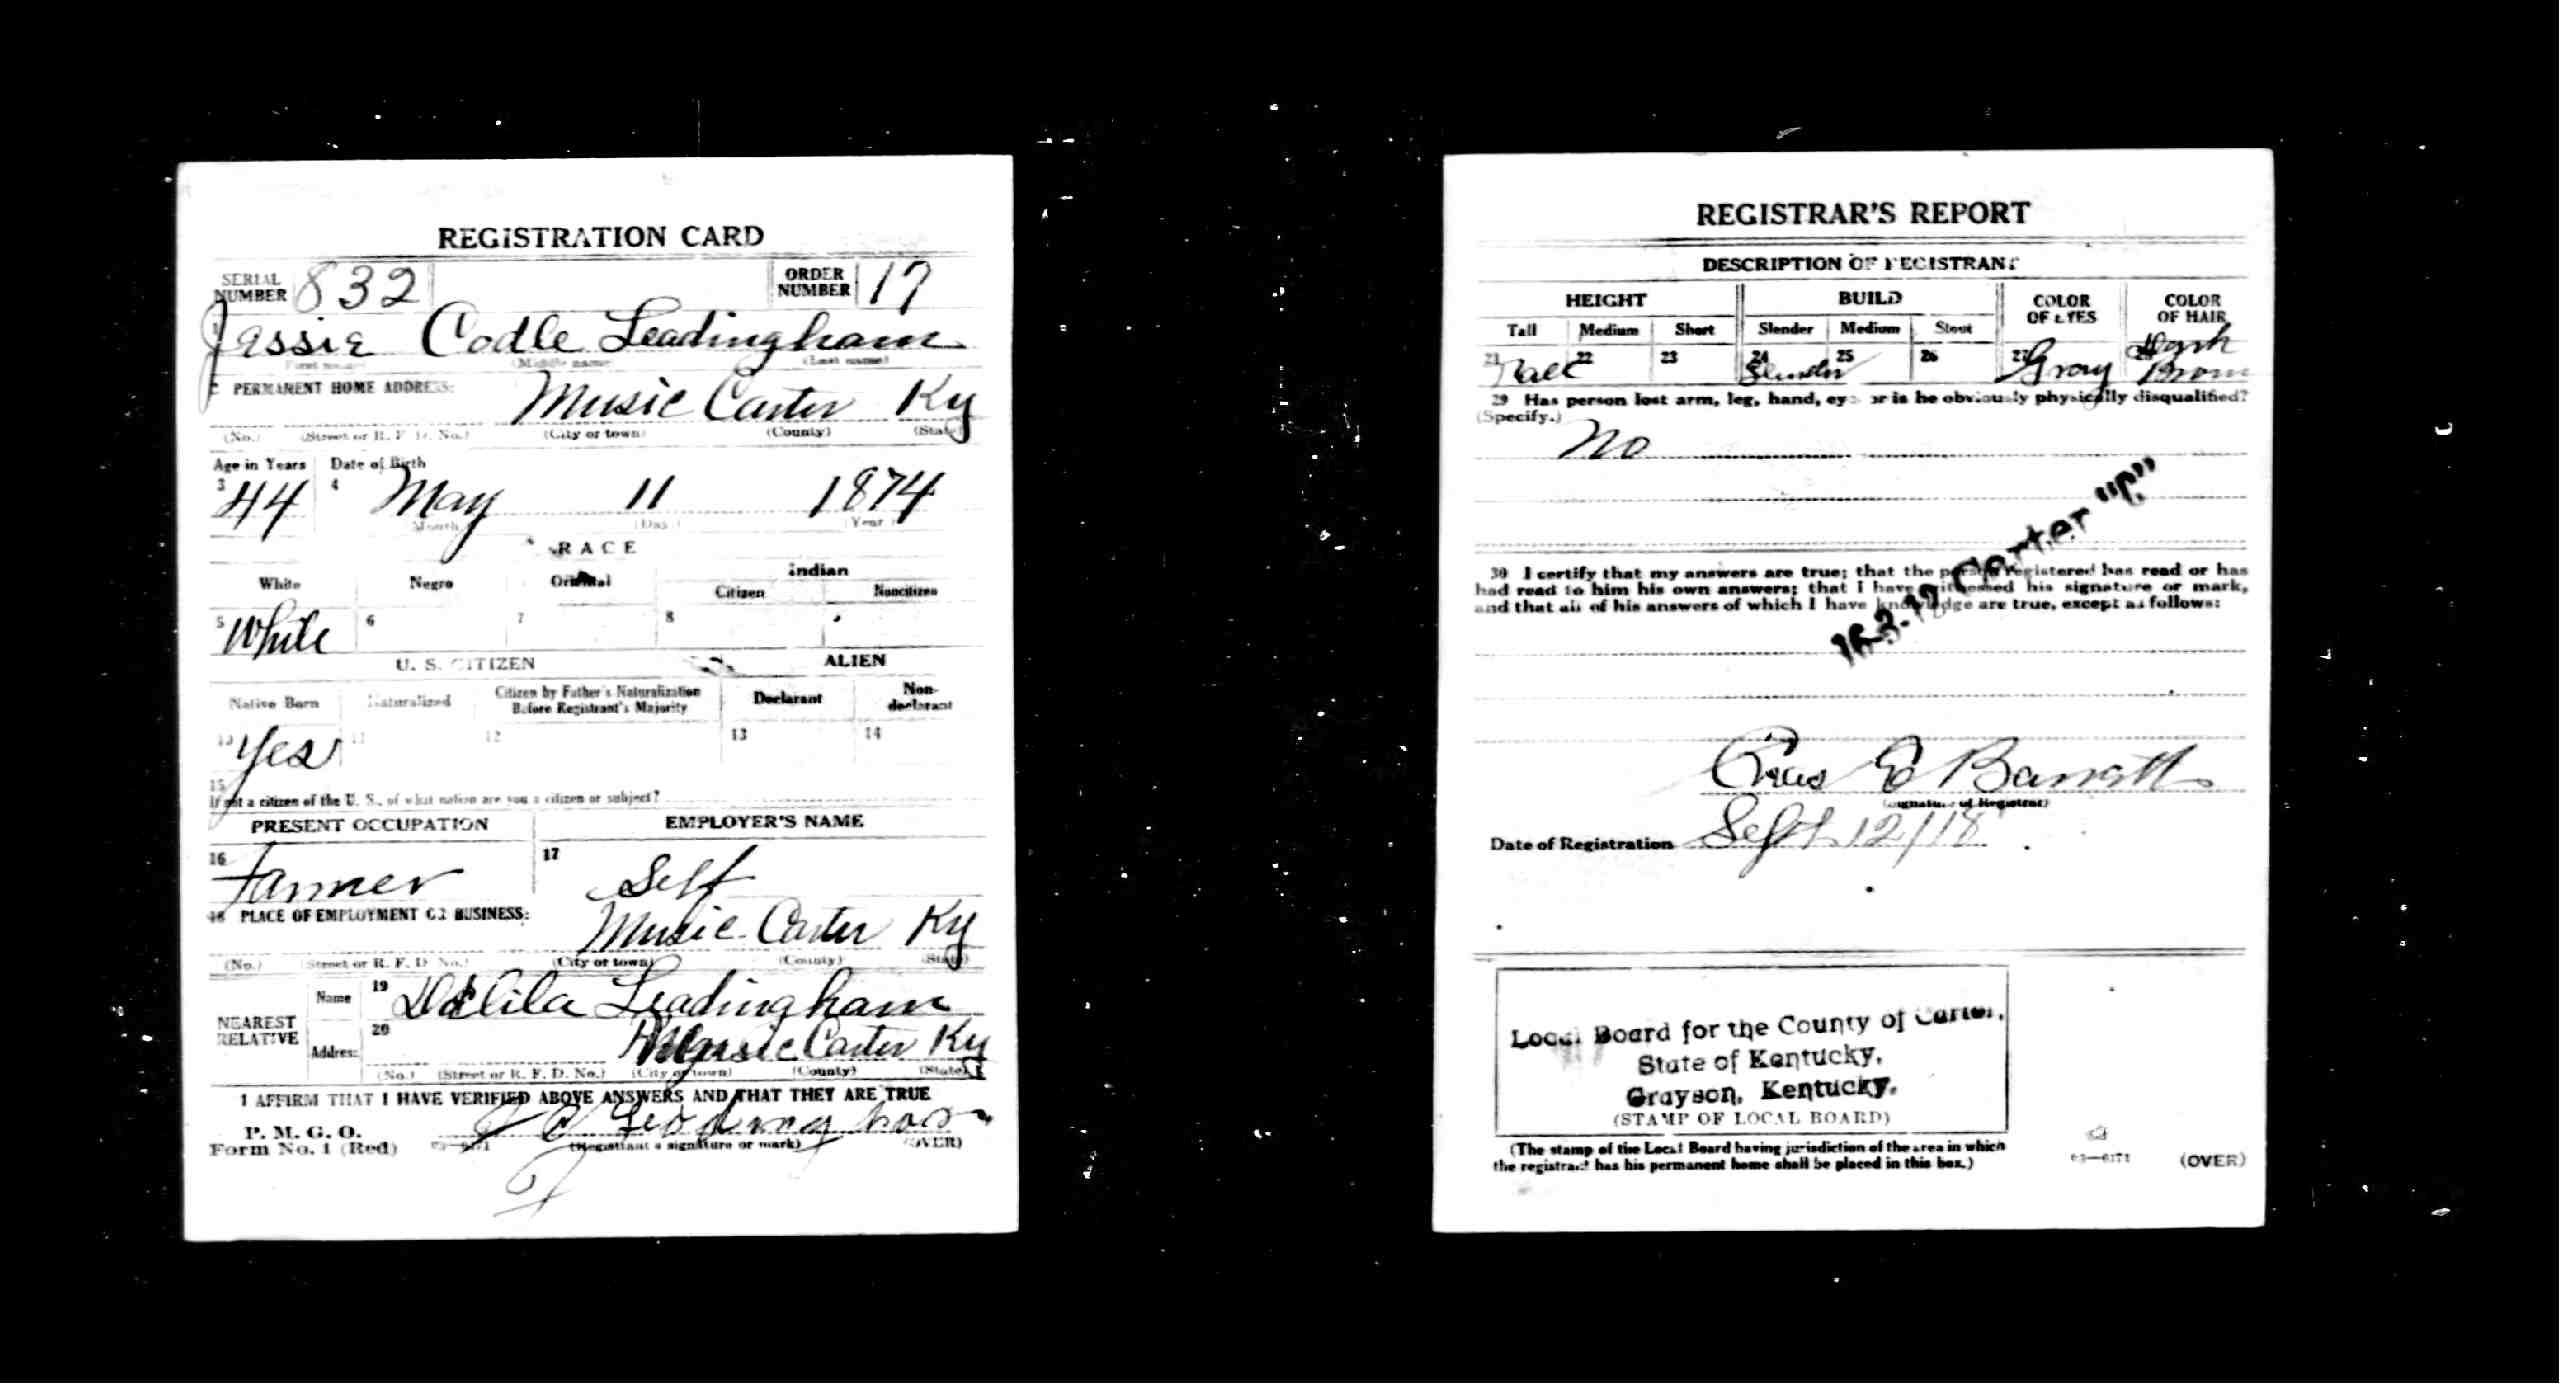 REGISTRATION CARD
SERIAL NUMBER 832 ORDER NUMBER 17
1 Jessie Codle Leadingham
(First name) (Middle name) (Last name)
2 PERMANENT HOME ADDRESS:
Music Carter Ky
(No.) (Street or R. F. D. No.) (City or town) (County) (State)
Age in Years Date of Birth
3 44 4 May 11 1874
(Month) (Day) (Year)
RACE
White Negro Oriental Indian
Citizen Noncitizen
5 White 6 7 8
U. S. CITIZEN ALIEN
Native Born Naturalized Citizen by Father's Naturalization Before Registrant's Majority Declarant Non-declarant
10 Yes 11 12 13 14
15
If not a citizen of the U. S., of what nation are you a citizen or subject?
PRESENT OCCUPATION EMPLOYER'S NAME
16 Farmer 17 Self
18 PLACE OF EMPLOYMENT OR BUSINESS:
Music Carter Ky
(No.) (Street or R. F. D. No.) (City or town) (County) (State)
NEAREST RELATIVE
Name 19 Delila Leadingham
Address 20 Music Carter Ky
(No.) (Street or R. F. D. No.) (City or town) (County) (State)
I AFFIRM THAT I HAVE VERIFIED ABOVE ANSWERS AND THAT THEY ARE TRUE
P. M. G. O.
Form No. 1 (Red) J C Leadingham
(Registrant's signature or mark) (OVER)
REGISTRAR'S REPORT
DESCRIPTION OF REGISTRANT
HEIGHT BUILD COLOR OF EYES COLOR OF HAIR
Tall Medium Short Slender Medium Stout
21 Tall 22 23 24 Slender 25 26 27 Gray 28 Dark Brown
29 Has person lost arm, leg, hand, eye, or is he obviously physically disqualified?
(Specify.)
No
16-3-19 Carter "C"
30 I certify that my answers are true; that the person registered has read or has
had read to him his own answers; that I have witnessed his signature or mark,
and that all of his answers of which I have knowledge are true, except as follows:
Chas E Barrett
(Signature of Registrar)
Date of Registration Sept 12/18
Local Board for the County of Carter,
State of Kentucky,
Grayson, Kentucky.
(STAMP OF LOCAL BOARD)
(The stamp of the Local Board having jurisdiction of the area in which
the registrant has his permanent home shall be placed in this box.)
03—6171 (OVER)